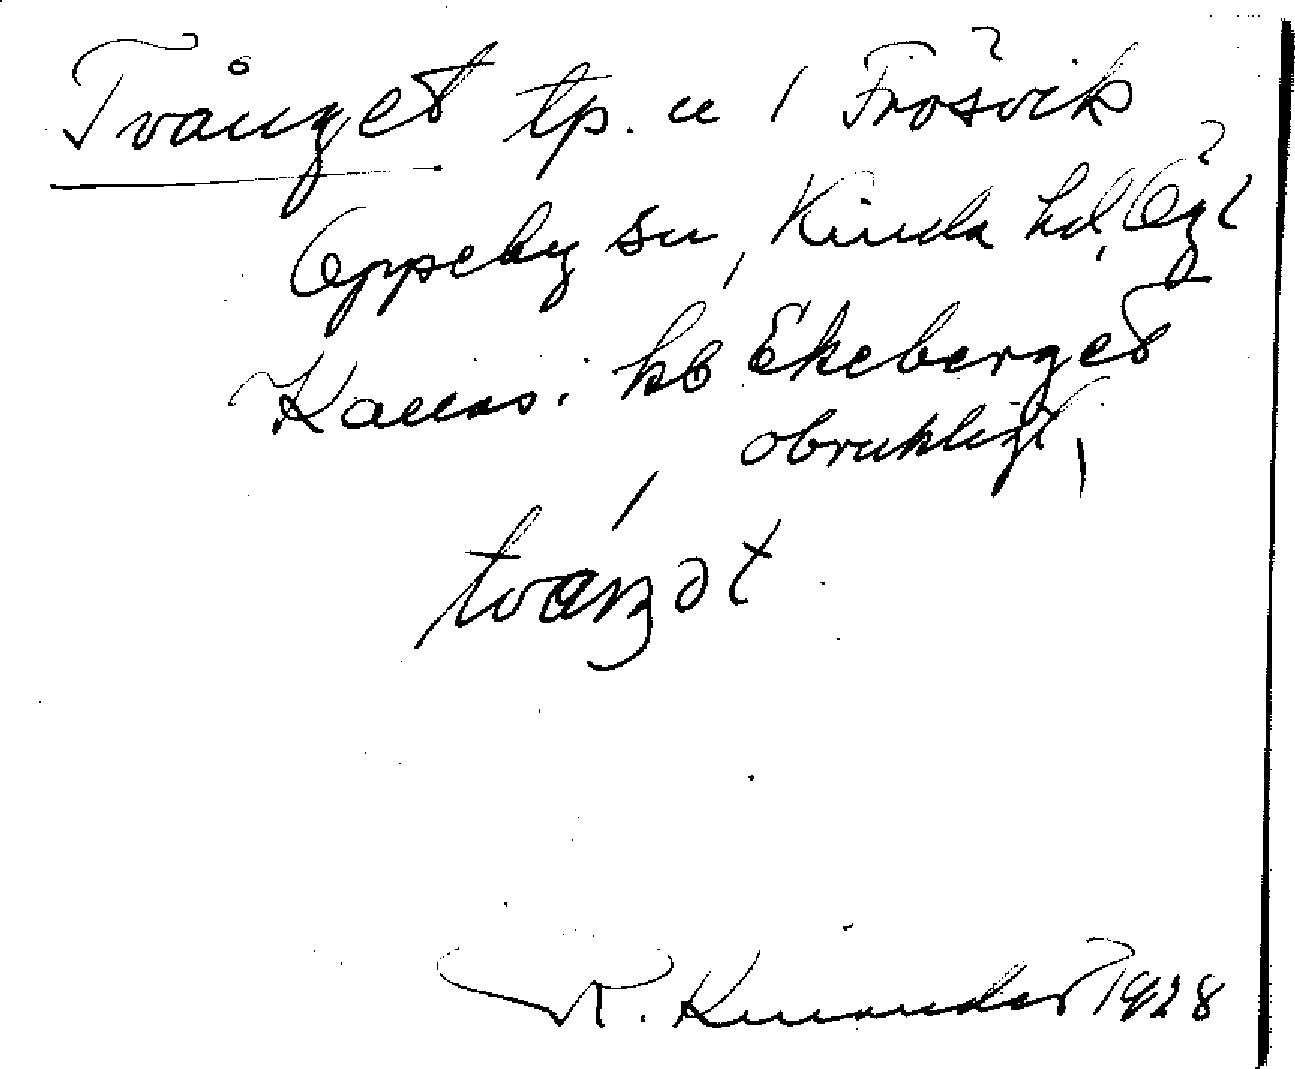 Tvånget tp. u / Frösvik
Oppeby sn, Kinda hd, Ögl
Kallas. kb Ekeberget
obrukligt,
/ tvaŋət
R. Kinander 1928